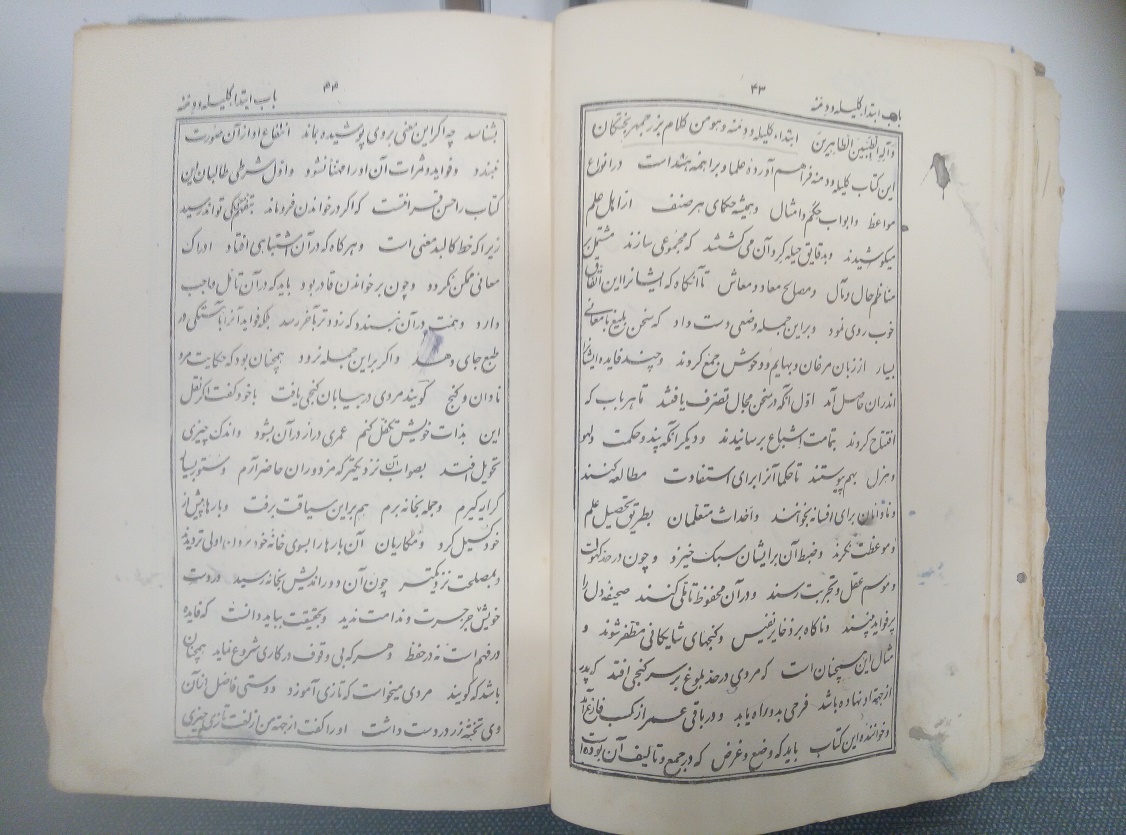 باب ابتداء کلیله و دمنه
۴۳
وآله الطیبین الطاهرین ابتداء کلیله و دمنه و هو من کلام بزرجمهر بختکان
این کتاب کلیله و دمنه فراهم آورده علما و براهمه هند است در انواع
مواعظ و ابواب حکم و امثال و همیشه حکمای هر صنف از اهل علم
میکوشیدند و بدقایق حیله کرد آن می کشتند که مجموعی سازند مشتمل بر
مناظم حال و مآل و مصالح معاد و معاش تا آنکاه که ایشانرا این اتفاق
خوب روی نمود و برین جمله وضعی دست داد که سخن بلیغ با معانی
بسیار از زبان مرغان و بهایم و وحوش جمع کردند و چند فایده ایشانرا
اندران حاصل آمد اول آنکه در سخن مجال تصرف یافتند تا هر باب که
افتتاح کردند بتمامت اشباع برسانیدند و دیکر آنکه پند و حکمت و لهو
و هزل بهم پیوستند تا حکما آنرا برای استفادت مطالعه کنند
و نادانان برای افسانه بخوانند و احداث متعلمان بطریق تحصیل علم
و موعظت نکرند و ضبط آن برایشان سبک خیزد و چون در حد کهولت
و موسم عقل و تجربت رسند و در آن محفوظ تاملی کنند صحیفه دل را
پر فواید بینند و ناکاه بر ذخایر نفیس و کنجهای شایکانی مظفر شوند و
مثال این همچنان است که مردی در حد بلوغ بر سر کنجی افتد که پدر
از جهة او نهاده باشد فرحی بدو راه یابد و در باقی عمر از کسب فارغ آید
و خواننده این کتاب باید که وضع و غرض که در جمع و تالیف آن بوده است
باب ابتداء کلیله و دمنه
۴۴
بشناسد چه اکر این معنی بر وی پوشیده بماند انتفاع او از آن صورت
نبندد و فواید و ثمرات آن او را مهنا نشود و اول شرطی طالب این
کتاب را حسن قرائتست که اکر در خواندن فروماند بتفهم کی تواند رسید
زیرا که خط کالبد معنی است و هر کاه که در آن اشتباهی افتاد ادراک
معانی ممکن نکردد و چون بر خواندن قادر بود باید که در آن تامل واجب
دارد و همت در آن نبندد که زودتر بآخر رسد بلکه فواید آنرا بآهستکی در
طبع جای دهد و اکر برین جمله نرود همچنان بود که حکایت مرد
نادان و کنج کویند مردی در بیابان کنجی یافت با خود کفت اکر نقل
این بذات خویش تکفل کنم عمری دراز در آن بشود و اندک چیزی
تحویل افتد بصواب آن نزدیکتر که مزدوران حاضر آرم و ستور بسیار
کرایه کیرم و جمله بخانه برم هم بر این سیاقت برفت و بارها پیش از
خود کسیل کرد و مکاریان آن بارها را بسوی خانه خود بردن اولی تر دیدند
و بمصلحت نزدیکتر چون آن دوراندیش بخانه رسید در دست
خویش جز حسرت و ندامت ندید و بحقیقت بباید دانست که فایده
در فهم است نه در حفظ و هر که بی وقوف در کاری شروع نماید همچنان
باشد که کویند مردی میخواست که تازی آموزد دوستی فاضل از آن
وی تخته زر در دست داشت او را کفت از جهة من از لغت تازی چیزی